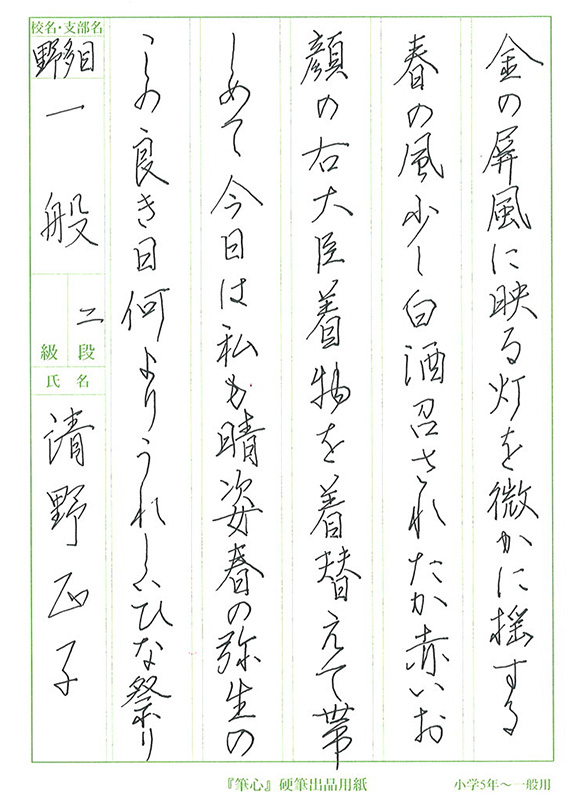 金の屏風に映る灯を微かに揺する
春の風少し白酒召されたか赤いお
顔の右大臣着物を着替えて帯
しめて今日は私も晴姿春の弥生の
この良き日何よりうれしいひな祭り
校名・支部名
野多目
一般
二
段
級
氏名
清野正子
『筆心』硬筆出品用紙
小学5年～一般用